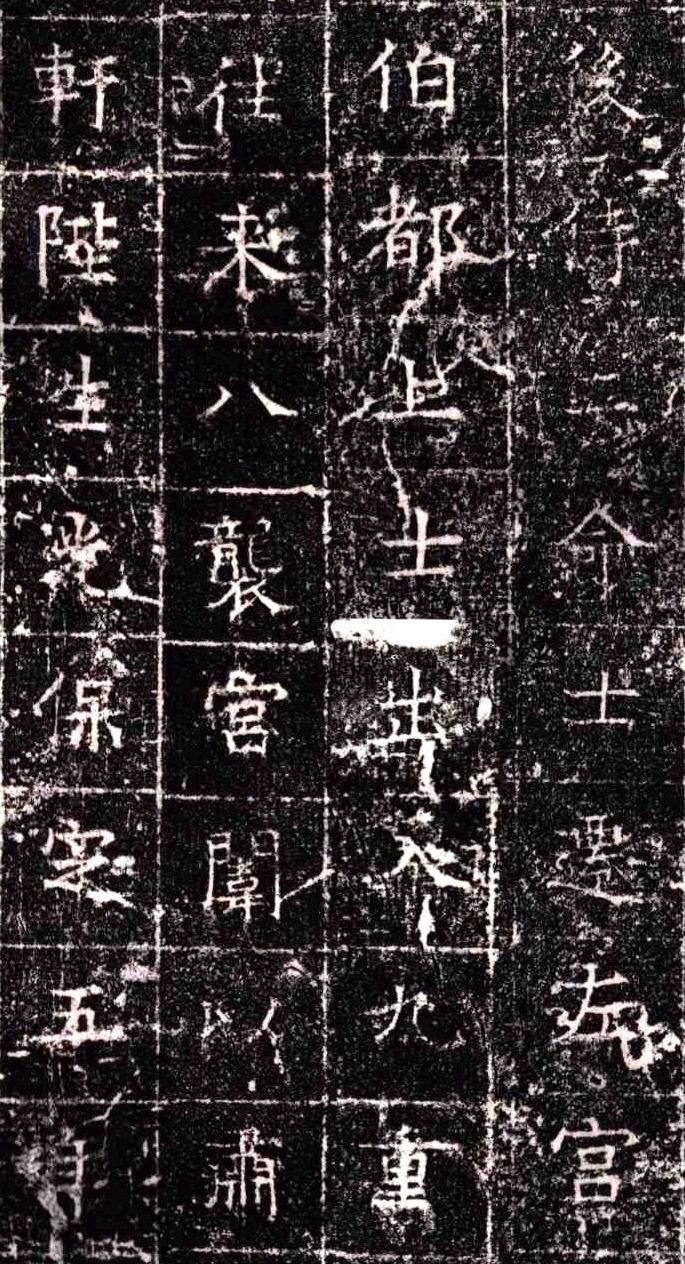 後侍二命士遷右宮
伯都上士出入九重
往来八襲宮闈以肅
軒陛生光保定五年